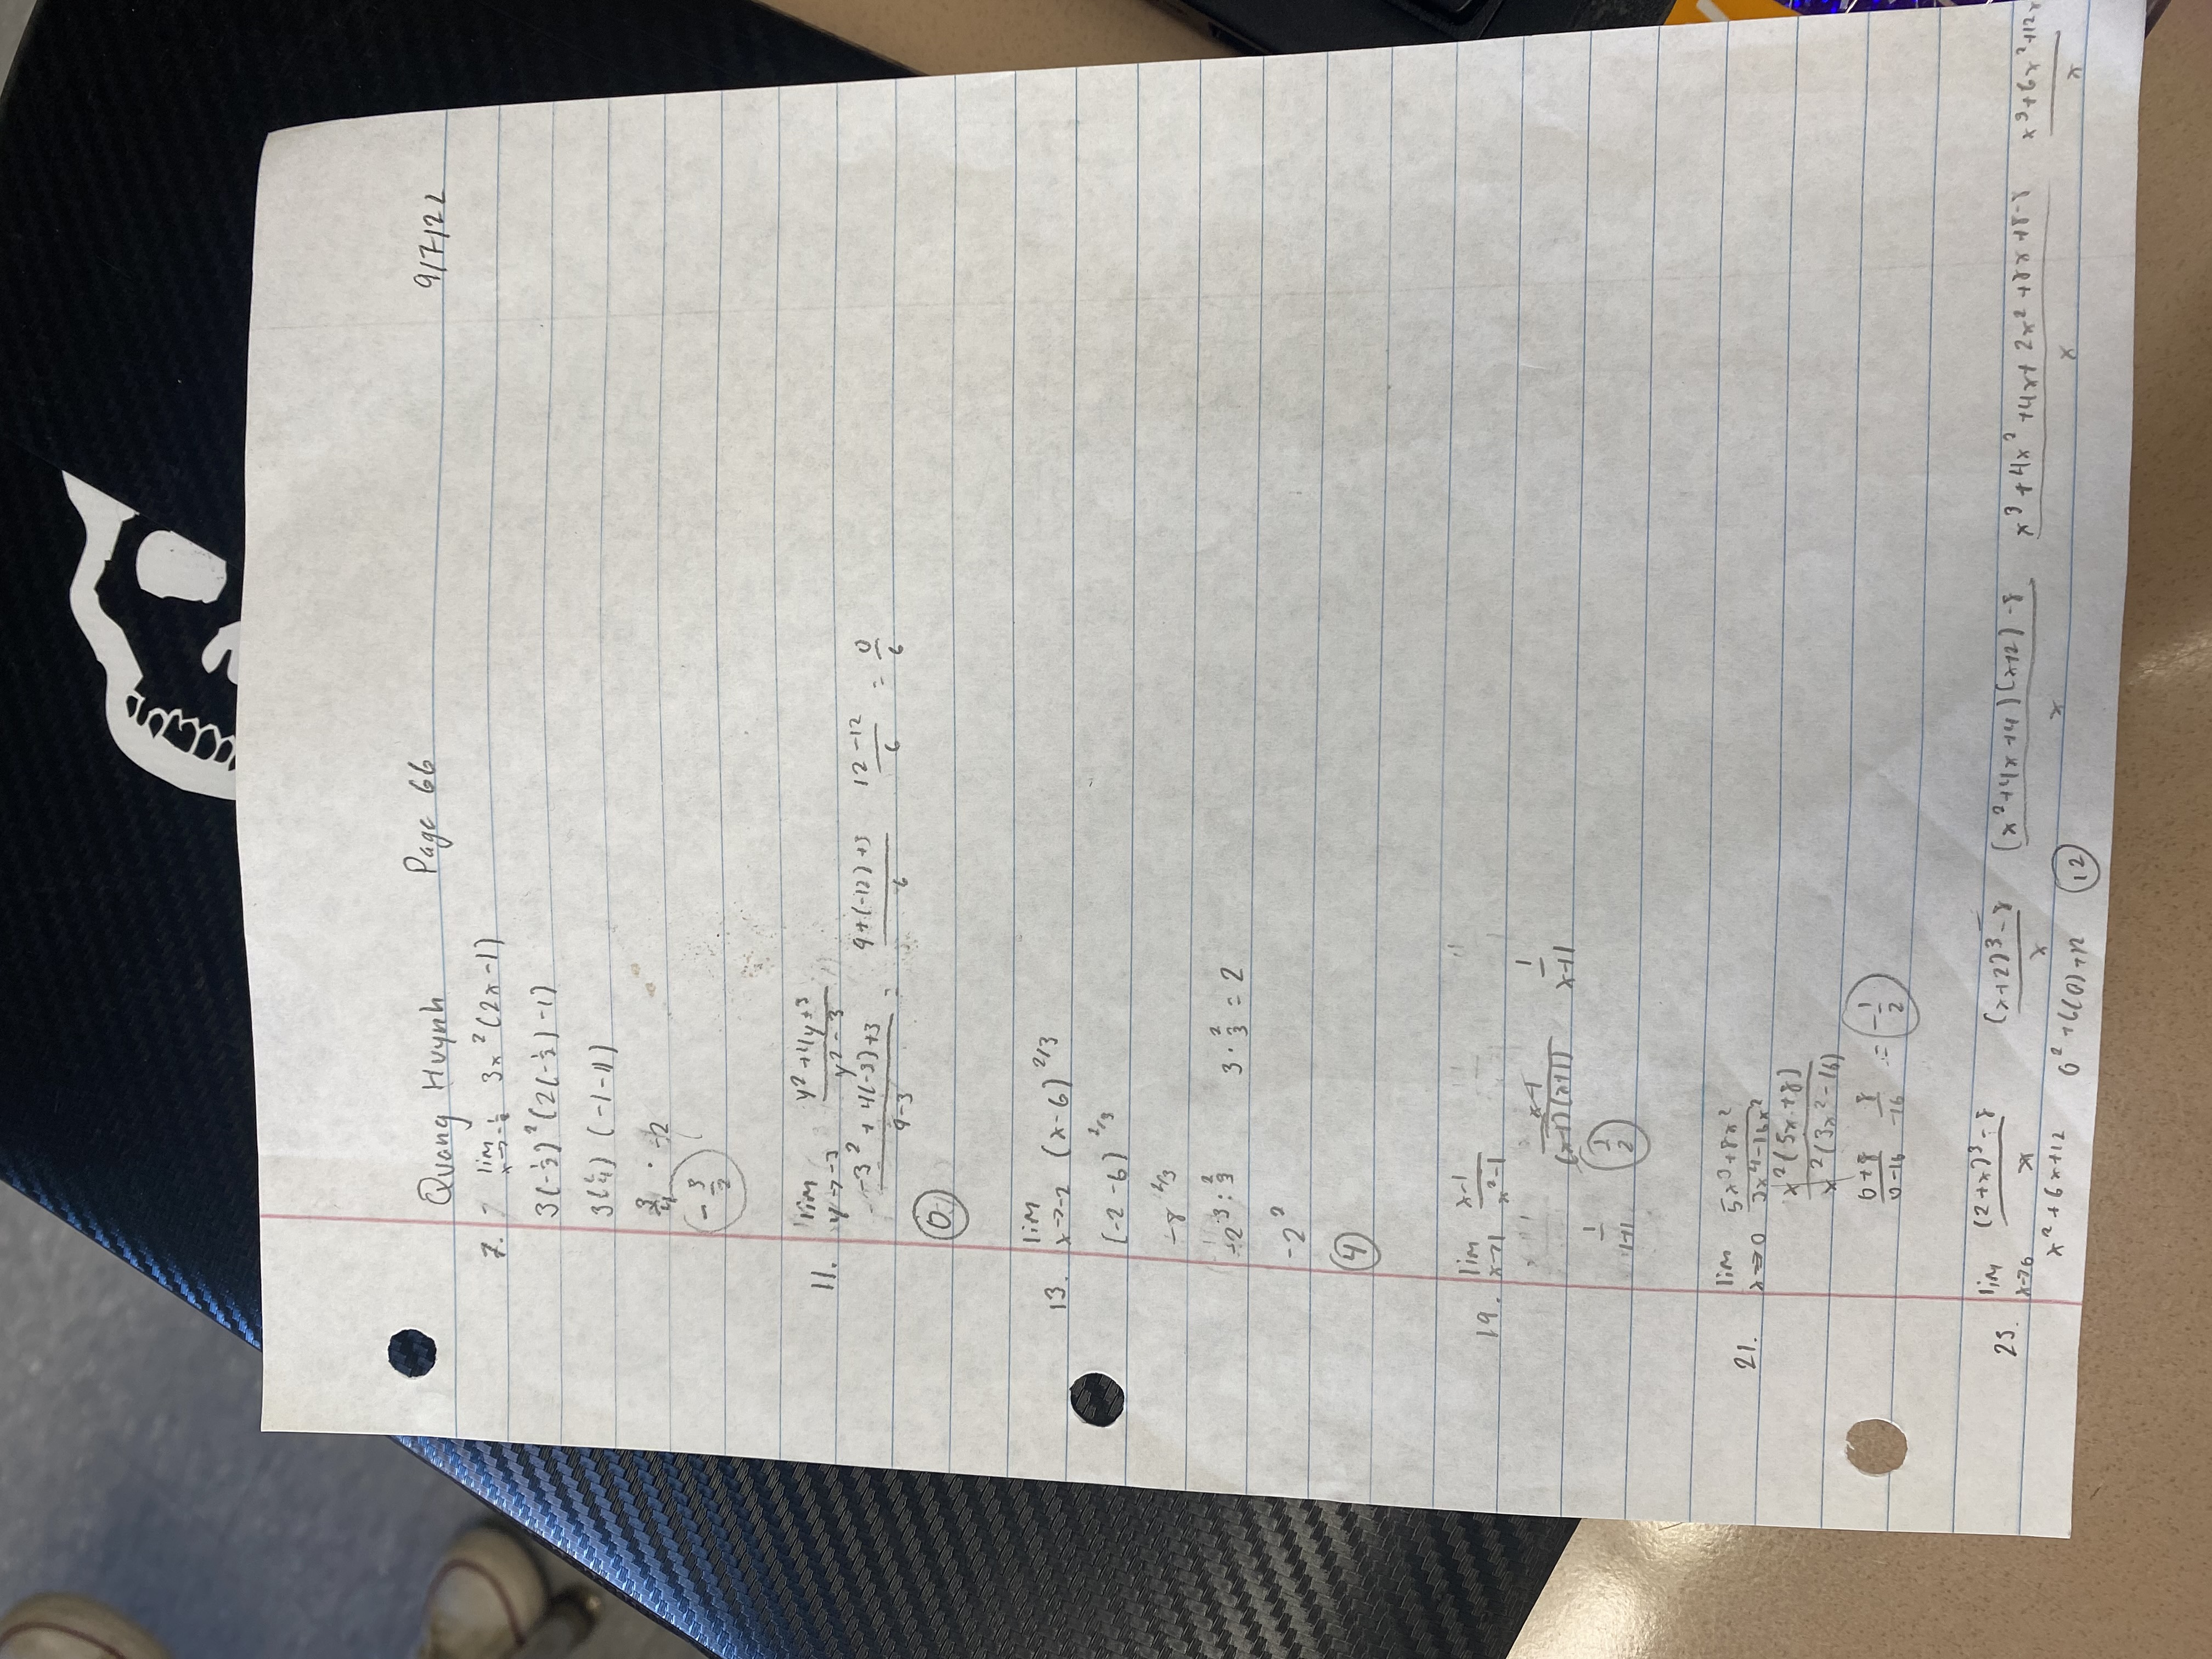 Quang Huynh Page 66 9/7/22
7. lim x→-1/2 3x²(2x-1)
3(-1/2)²(2(-1/2)-1)
3(1/4) (-1-1)
3/4 · -2
-3/2
11. lim y→-3 (y²+4y+3)/(y²-3)
(-3²+4(-3)+3)/(9-3) = (9+(-12)+3)/6 (12-12)/6 = 0/6
0
13. lim x→-2 (x-6)^2/3
(-2-6)^2/3
-8^2/3
-2^3·2/3 3·2/3=2
-2²
4
19. lim x→1 (x-1)/(x²-1)
(x-1)/((x-1)(x+1)) 1/(x+1)
1/(1+1) 1/2
21. lim x→0 (5x³+8x²)/(3x⁴-16x²)
x²(5x+8)/x²(3x²-16)
(0+8)/(0-16) 8/-16 = -1/2
23. lim x→0 ((2+x)³-8)/x ((x+2)³-8)/x ((x²+4x+4)(x+2)-8)/x (x³+4x²+4x+2x²+8x+8-8)/x (x³+6x²+12x)/x
x²+6x+12 0²+6(0)+12 12